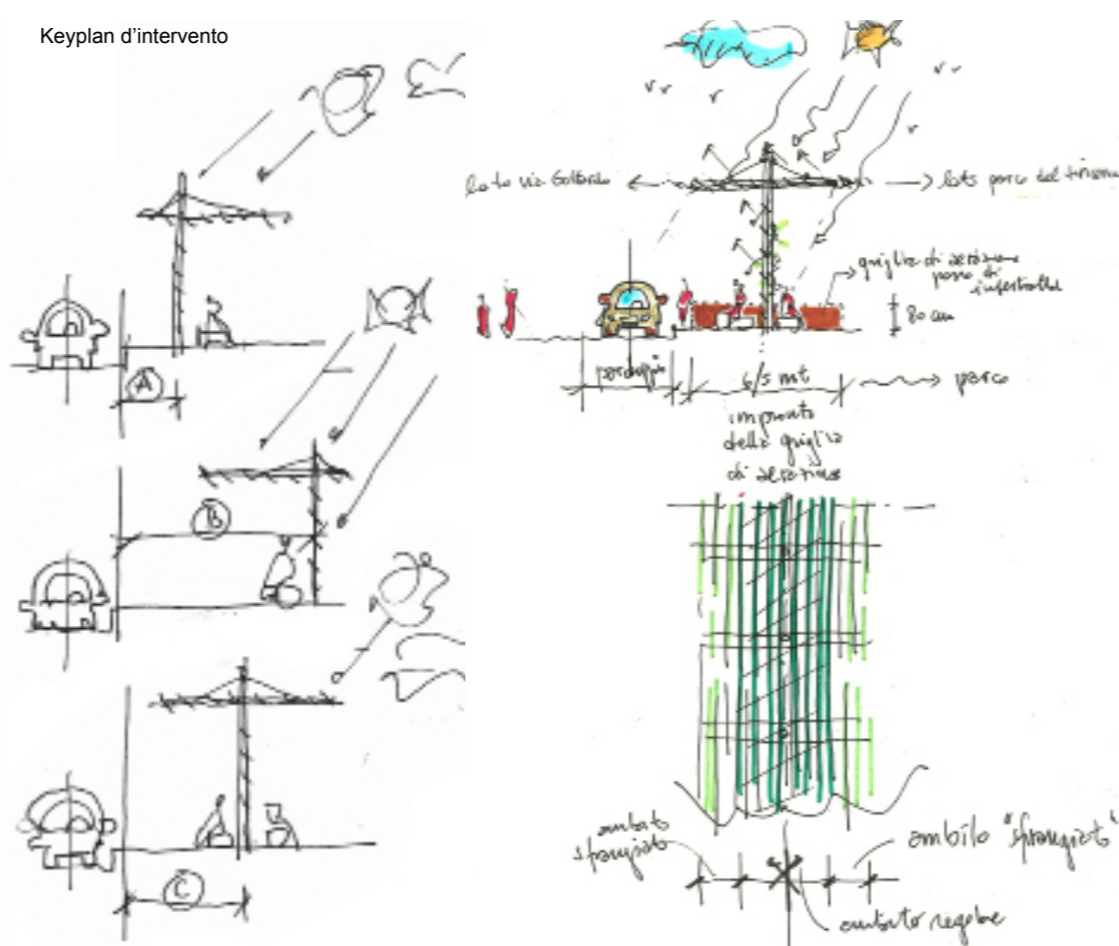 Keyplan d'intervento
lato via Gottardo
lato parco del
griglia di aerazione
80 cm
parcheggio
6/5 mt
parco
impronta
della griglia
di aerazione
A
B
C
ambito
sfrangiato
ambito "sfrangiato"
ambito regolare